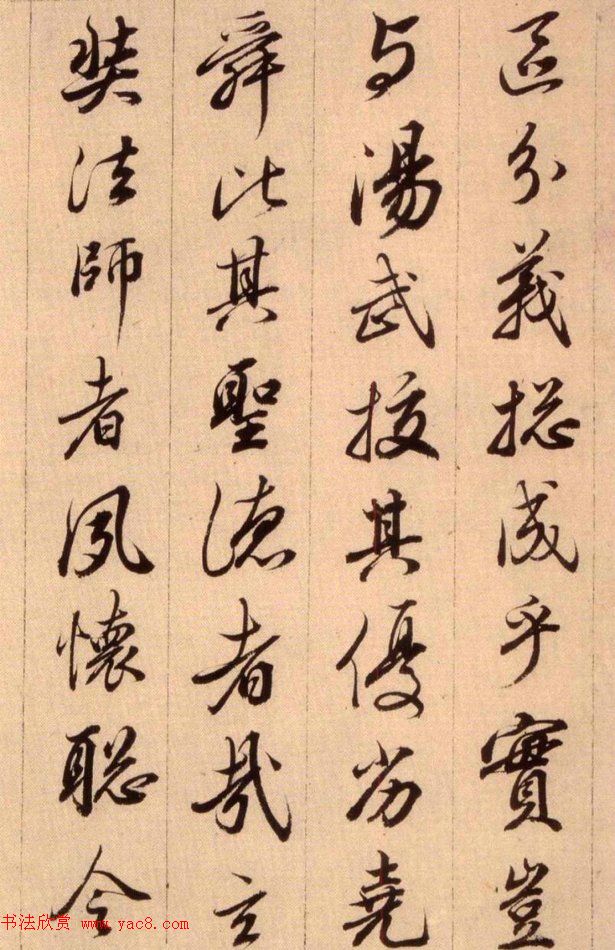 區分義揔成乎實豈
与湯武挍其優劣堯
舜比其聖德者哉玄
奘法師者夙懷聡令
书法欣赏 www.yac8.com